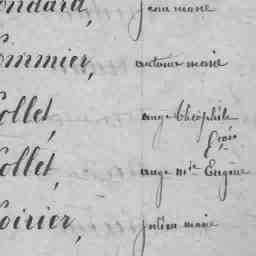 ondard, jean marie
ommier, antoine marie
ollet, ange théophile
François
ollet, ange mie Eugène
oirier, julien marie